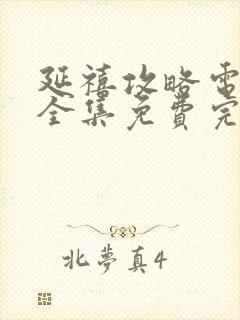 延禧攻略電
全集免費完
北夢真4